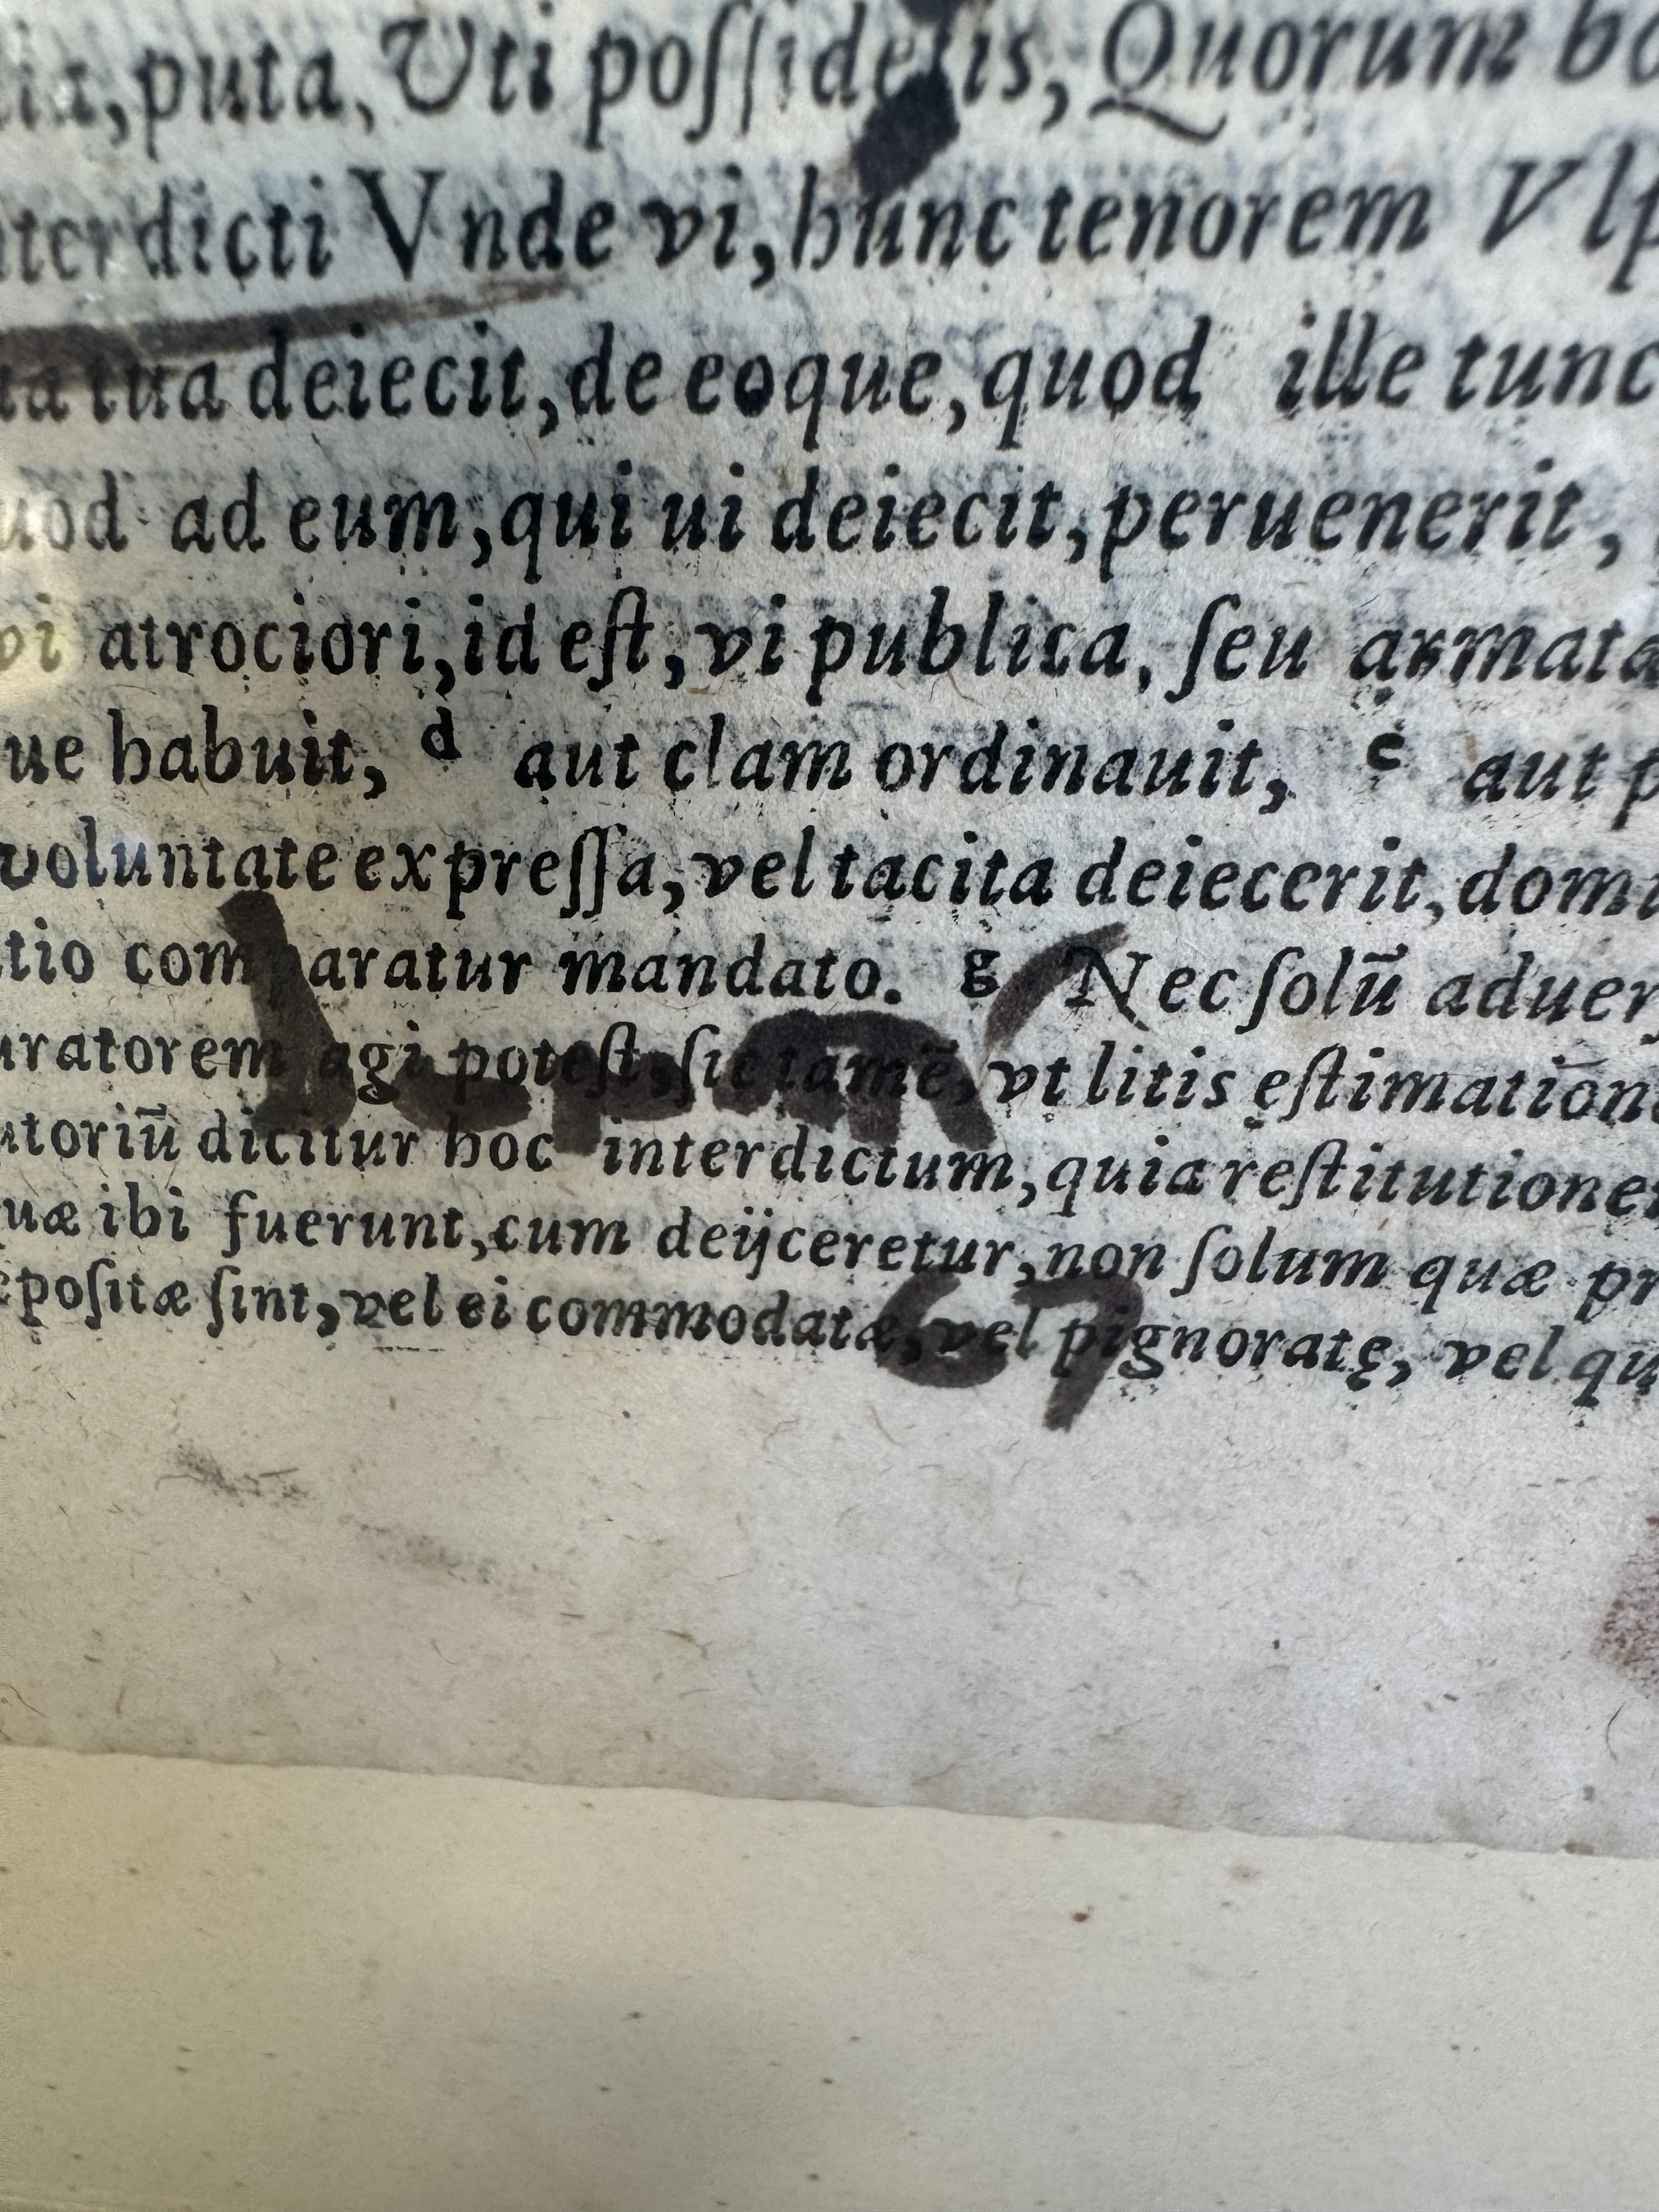 puta, Vti poſſidetis, Quorum
interdicti Vnde vi, hunc tenorem Vlp
tua deiecit, de eoque, quod ille tunc
quod ad eum, qui ui deiecit, peruenerit,
vi atrociori, id eſt, vi publica, ſeu armata
ue habuit, d aut clam ordinauit, e aut p
voluntate expreſſa, vel tacita deiecerit, domi
tio comparatur mandato. g Nec ſolū aduerſ
uratorem agi poteſt, ſic tamē, vt litis ęſtimation
utoriū dicitur hoc interdictum, quia reſtitutione
uæ ibi fuerunt, cum deijceretur, non ſolum quæ pr
epoſitæ ſint, vel ei commodatæ, vel pignoratę, vel qu
67